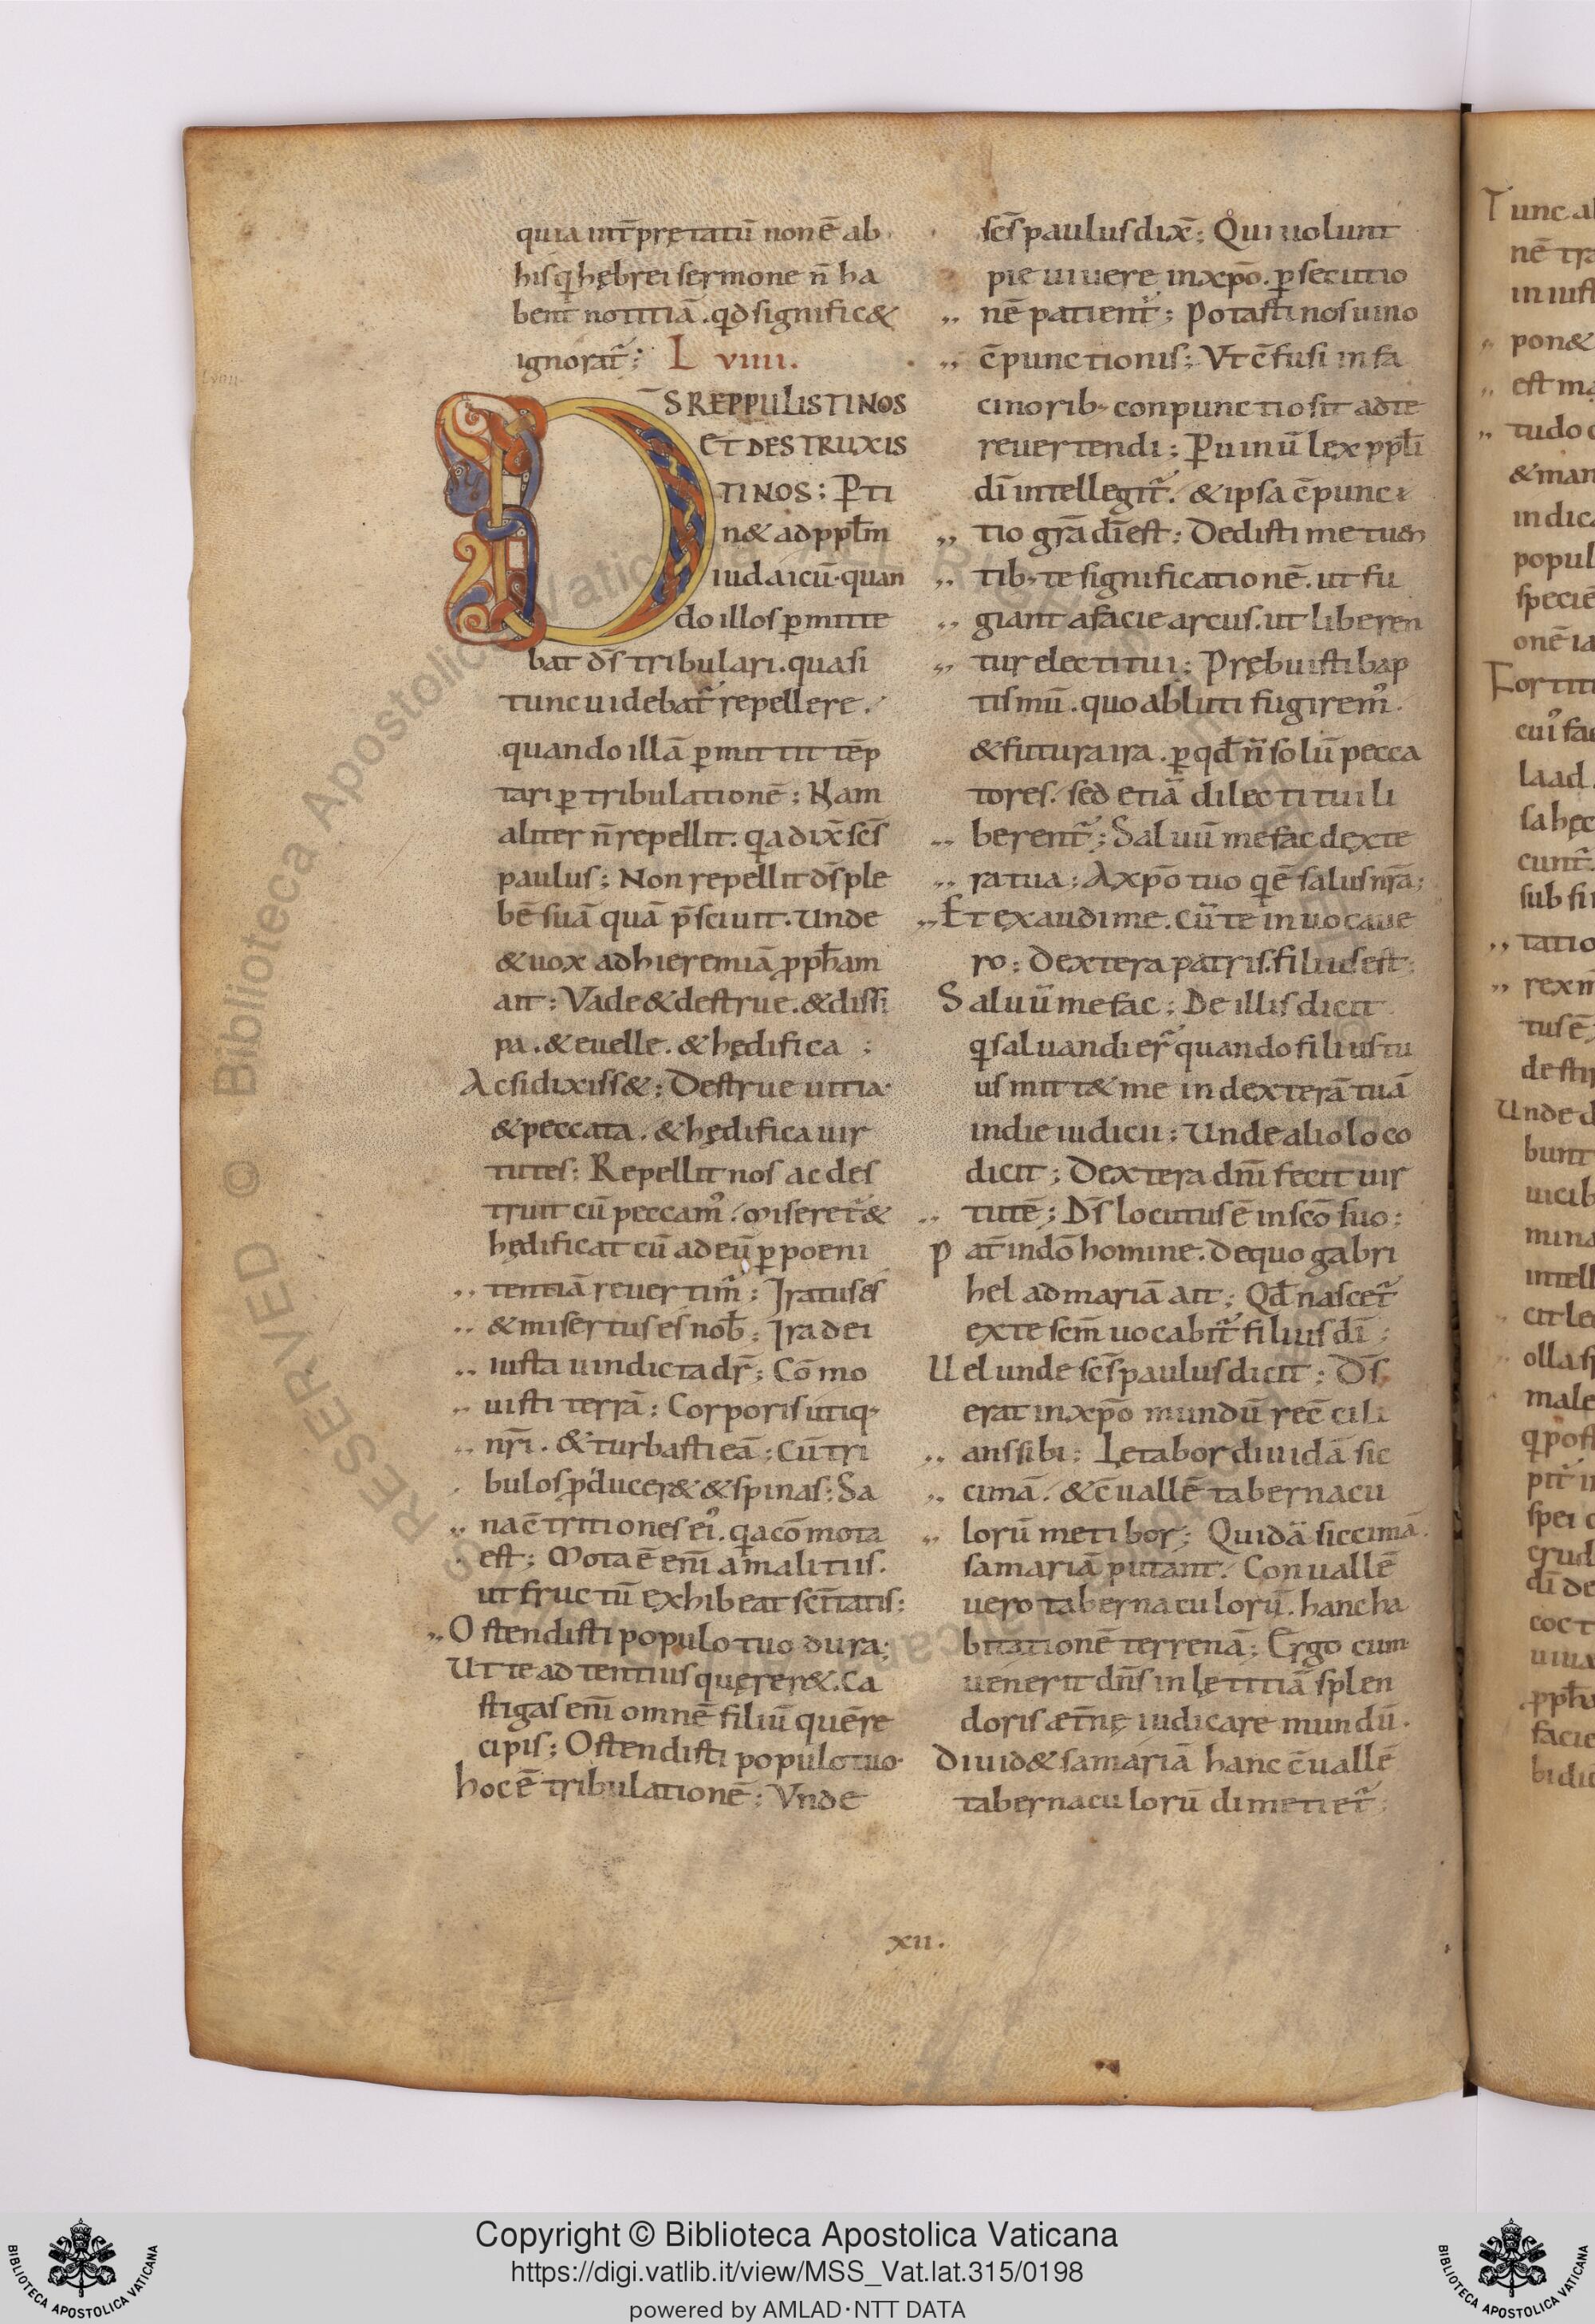 quia int̄pretatū non ē ab
his q hebrei sermone n̄ ha
bent notitiā. qd signific&
ignorat̄; L viiii.
Lviiii
D̄S REPPULISTI NOS
ET DESTRUXIS
TI NOS; Pti
n& ad ppl̄m
iudaicū. quan
do illos pmitte
bat d̄s tribulari. quasi
tunc uidebat̄ repellere.
quando illā pmittit tēp
tari p tribulationē; Nam
aliter n̄ repellit. qa dix̄ sc̄s
paulus; Non repellit d̄s ple
bē suā quā p̄sciuit. Unde
& uox ad hieremiā pph̄am
ait; Vade & destrue. & dissi
pa. & euelle. & hędifica;
Ac si dixiss&; Destrue uitia
& peccata. & hędifica uir
tutes; Repellit nos ac des
truit cū peccam᾿. miseret̄ &
hędificat cū ad eū p poeni
,, tentiā reuertim̄; Iratus es
,, & misertus es nob̄; Ira dei
,, iusta uindicta dr̄; Cōmo
,, uisti terrā; Corporis utiq;
,, nr̄i. & turbasti eā; Cū tri
bulos pducer& & spinas; Sa
,, na c̄tritiones ei᾿. qa cōmota
est; Mota ē eni̅ a malitiis.
ut fructū exhibeat sc̄itatis;
,, Ostendisti populo tuo dura;
Ut te ad tentius quęrer&. Ca
stigas eni̅ omnē filiū quē re
cipis; Ostendisti populo tuo
hoc ē tribulationē; Vnde
sc̄s paulus dix̄; Qui uolunt
pie uiuere in xp̄o. psecutio
,, nē patient̄; Potasti nos uino
,, c̄punctionis; Vt c̄fusi in fa
cinorib; conpunctio sit ad te
reuertendi; Puinū lex ppl̄i
dī intellegit̄. & ipsa c̄punc
,, tio gr̄a dī est; Dedisti metuen
,, tib; te significationē. ut fu
,, giant a facie arcus. ut liberen
,, tur electi tui; Prębuisti bap
tismū. quo abluti fugirem᾿
& futura ira. p qd n̄ solū pecca
tores. sed etiā dilecti tui li
,, berent̄; Saluū me fac dexte
,, ra tua; A xp̄o tuo q ē salus nr̄a;
,, Et exaudi me. cū te inuocaue
ro; Dextera patris. filius est;
Saluū me fac; De illis dicit
q saluandi er̄ quando filius tu
us mitt& me in dexterā tuā
in die iudicii; Unde alio loco
dicit; Dextera dn̄i fecit uir
,, tutē; D̄s locutus ē in sc̄o suo;
Pat̄ in dō homine. de quo gabri
hel ad mariā ait; Qd nascet̄
ex te scm̄ uocabit̄ filius dī;
Uel unde sc̄s paulus dicit; D̄s
erat in xp̄o mundū rec̄cili
,, ans sibi; Lętabor diuidā sic
,, cimā. & c̄uallē tabernacu
,, lorū metibor; Quidā siccimā
samariā putant. Conuallē
uero tabernaculorū. hanc ha
bitationē terrenā; Ergo cum
uenerit dn̄s in lętitiā splen
doris æt̄nę iudicare mundū.
Diuid& samariā hanc c̄uallē
tabernaculorū dimetiet̄;
xii.
Tunc a
nē tra
in iust
pon&
est ma
tudo
& man
indica
popul
speciē
onē ia
Fortit
cui᾿ fac
laad
sa hęc
cunt̄
sub fi
,, tatio
,, rex m
tus ē
destr
Unde d
bunt
uicib
mina
intell
cit le
olla s
male
q post
pit̄ i
spei
crud
dī de
coct
uiua
pph̄a
facie
bi dic
RESERVED © Biblioteca Apostolica Vaticana
Copyright © Biblioteca Apostolica Vaticana
https://digi.vatlib.it/view/MSS_Vat.lat.315/0198
powered by AMLAD·NTT DATA
BIBLIOTECA APOSTOLICA VATICANA
BIBLIOTECA APOSTOLICA VATICANA